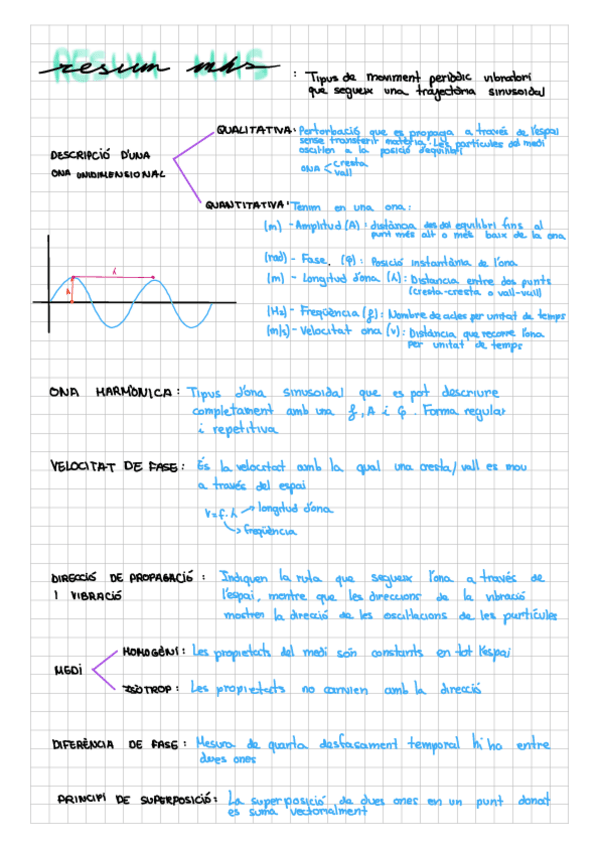 resum mhs
: Tipus de moviment periòdic vibratori
que segueix una trajectòria sinusoidal
QUALITATIVA: Pertorbació que es propaga a través de l'espai
sense transferir matèria. Les partícules del medi
oscil·len a la posició d'equilibri
DESCRIPCIÓ D'UNA
ONA UNIDIMENSIONAL
ONA cresta
vall
QUANTITATIVA: Tenim en una ona:
(m) - Amplitud (A): distància des del equilibri fins al
punt més alt o més baix de la ona
(rad) - Fase. (φ): Posició instantània de l'ona
(m) - Longitud d'ona (λ): Distancia entre dos punts
(cresta-cresta o vall-vall)
(Hz) - Freqüència (f): Nombre de cicles per unitat de temps
(m/s) - Velocitat ona (v): Distància que recorre l'ona
per unitat de temps
λ
A
ONA HARMÒNICA: Tipus d'ona sinusoidal que es pot descriure
completament amb una f, A i φ. Forma regular
i repetitiva
VELOCITAT DE FASE: És la velocitat amb la qual una cresta/vall es mou
a través del espai
v=f·λ → longitud d'ona
→ freqüència
DIRECCIÓ DE PROPAGACIÓ : Indiquen la ruta que segueix l'ona a través de
I VIBRACIÓ l'espai, mentre que les direccions de la vibració
mostren la direcció de les oscil·lacions de les partícules
HOMOGENI: Les propietats del medi són constants en tot l'espai
MEDI
ISÒTROP: Les propietats no canvien amb la direcció
DIFERÈNCIA DE FASE: Mesura de quanta desfasament temporal hi ha entre
dues ones
PRINCIPI DE SUPERPOSICIÓ: La superposició de dues ones en un punt donat
es suma vectorialment